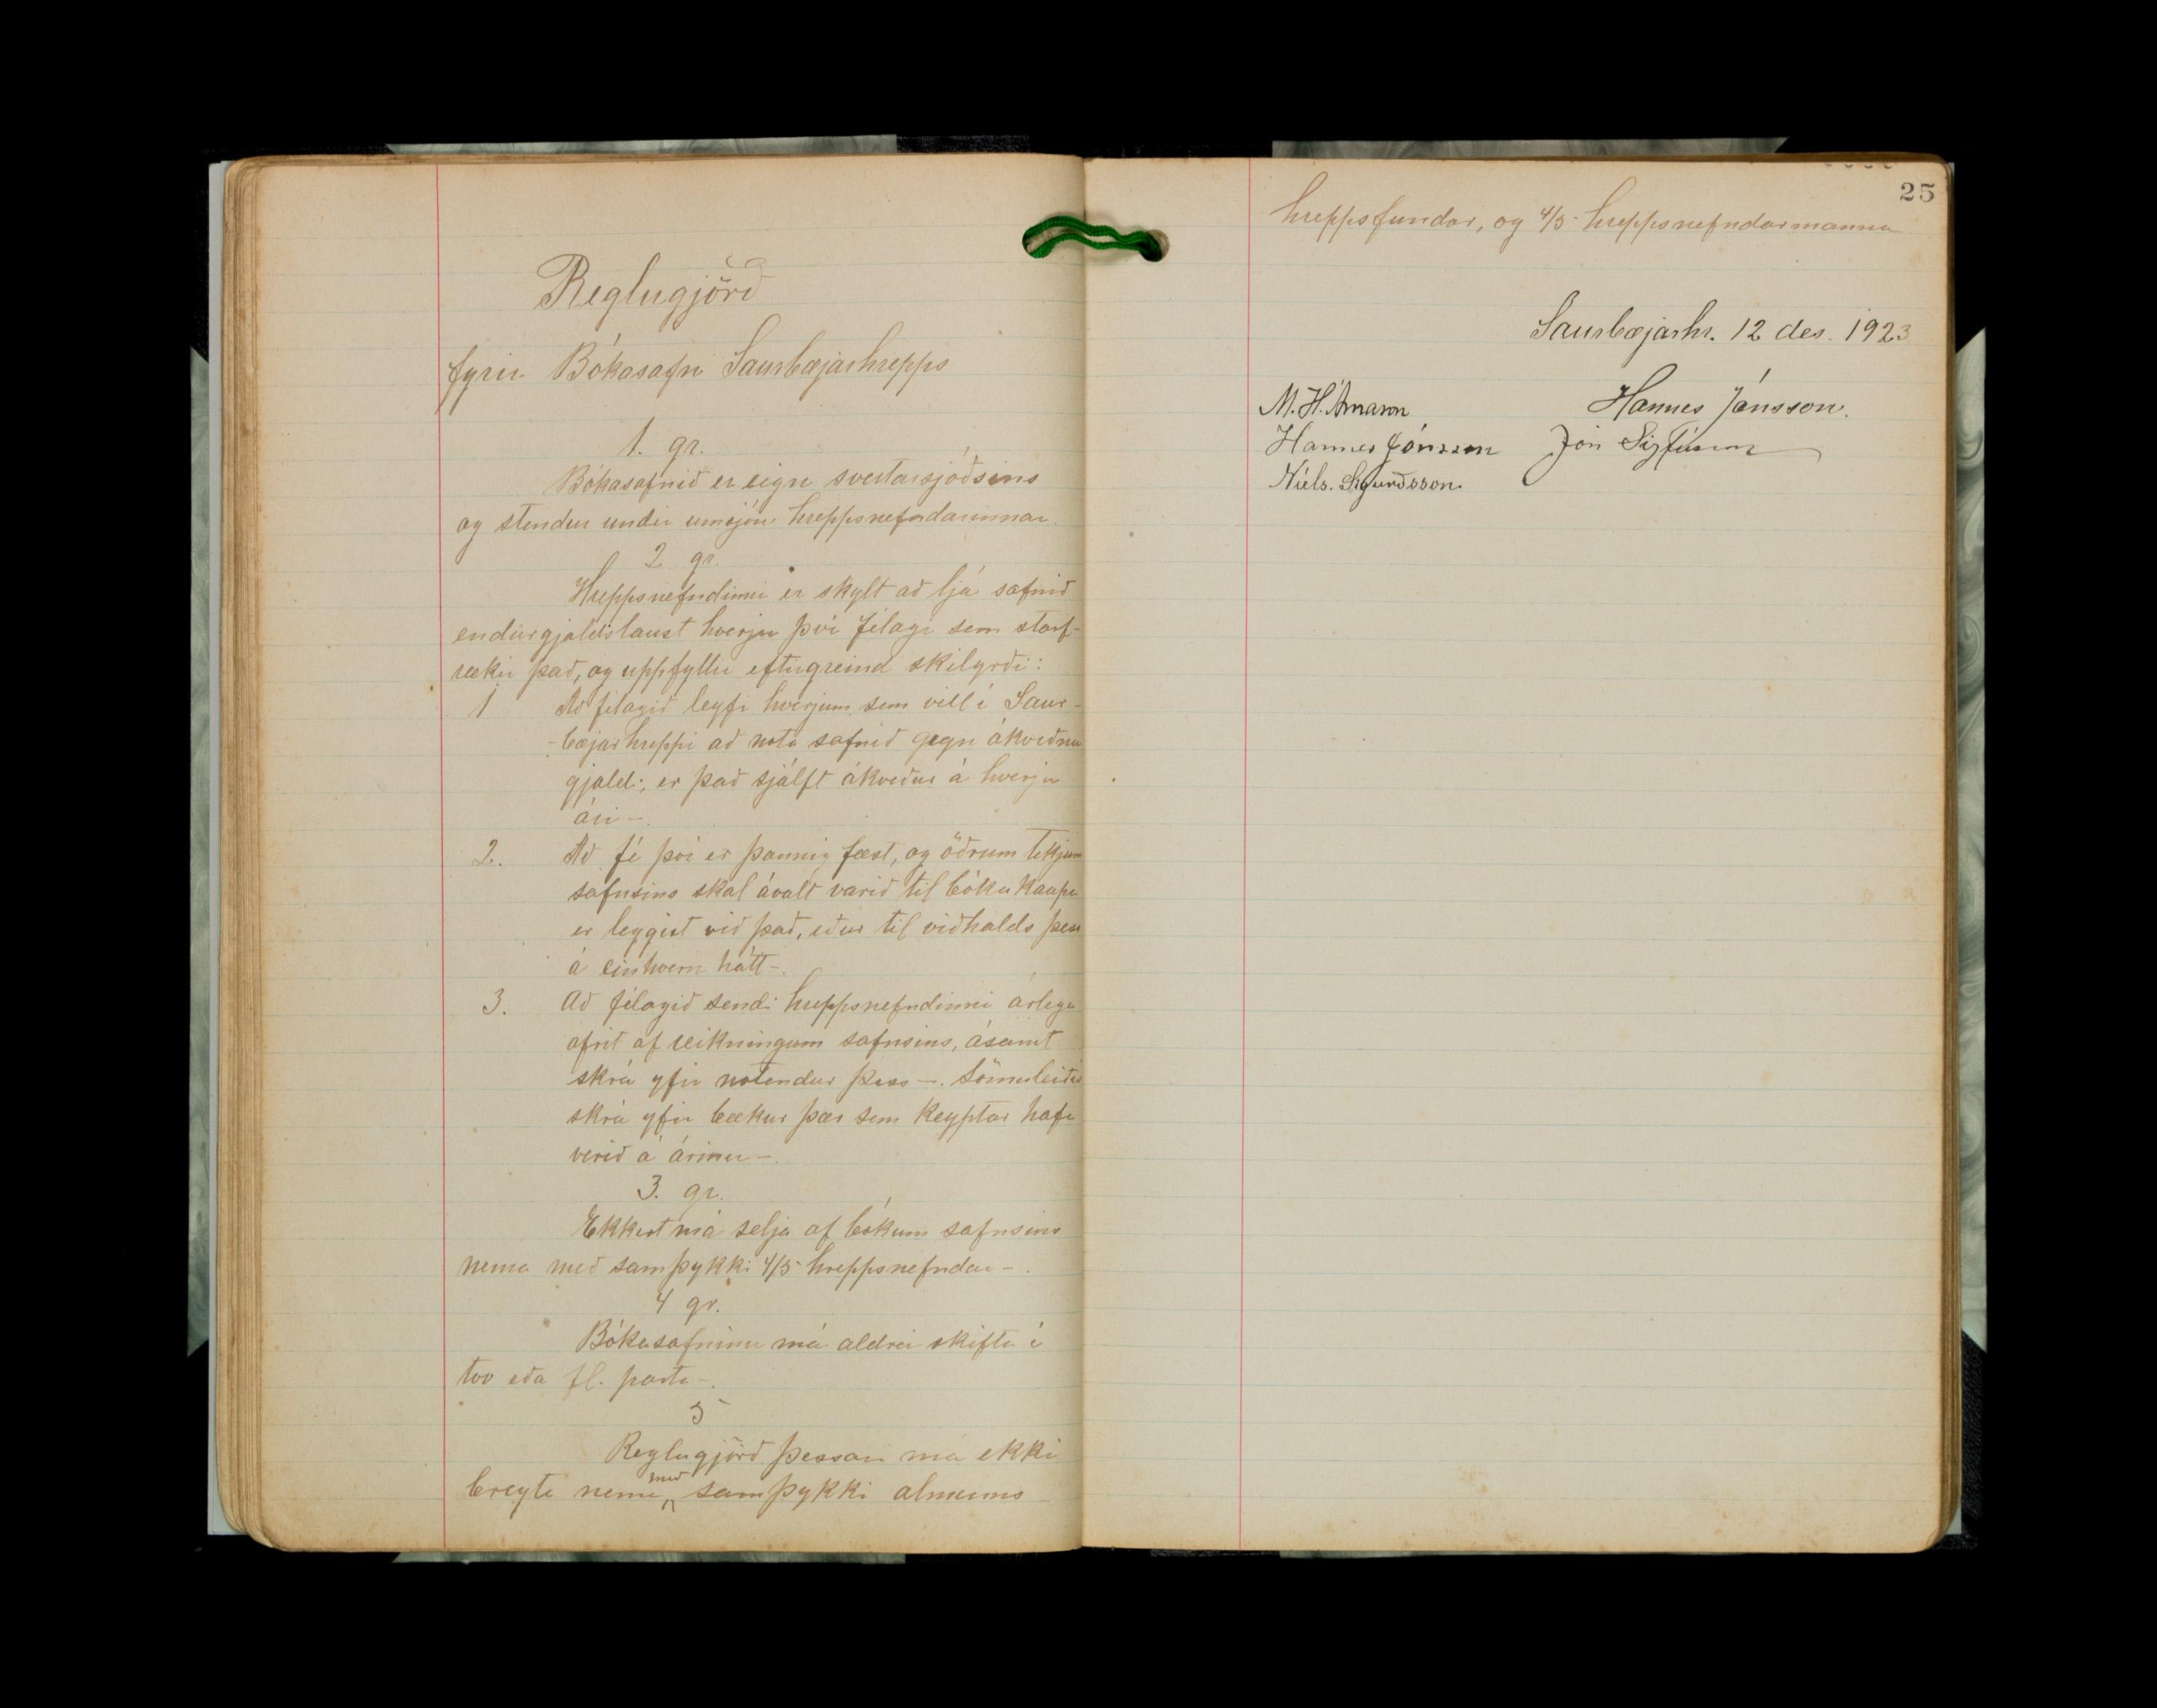 Reglugjörð
fyrir Bókasafn Saurbæjarhrepps
1. gr.
Bókasafnið er eign sveitarsjóðsins
og stendur undir umsjón hreppsnefndarinnar.
2 gr.
Hreppsnefndinni er skylt að ljá safnið
endurgjaldslaust hverju því félagi sem starf-
rækir það, og uppfyllir eftirgreind skilyrði:
1 Að félagið leyfi hverjum sem vill í Saur-
-bæjarhreppi að nota safnið gegn ákveðnu
gjaldi, er það sjálft ákveður á hverju
ári -.
2. Að fé því er þannig fæst, og öðrum tekjum
safnsins skal ávalt varið til bókakaupa
er leggist við það, eður til viðhalds þess
á einhvern hátt -.
3. Að félagið sendi hreppsnefndinni árlega
afrit af reikningum safnsins, ásamt
skrá yfir notendur þess -. Sömuleiðis
skrá yfir bækur þær sem keyptar hafa
verið á árinu -.
3. gr.
Ekkert má selja af bókum safnsins
nema með samþykki 4/5 hreppsnefndar -.
4 gr.
Bókasafninu má aldrei skifta í
tvo eða fl. parta -.
5
Reglugjörð þessari má ekki
breyta nema með samþykki almenns
25
hreppsfundar, og 4/5 hreppsnefndarmanna
Saurbæjarhr. 12 des. 1923
M. H. Árnason Hannes Jónsson.
Hannes Jónsson Jón Sigfússon
Níels. Sigurðsson.